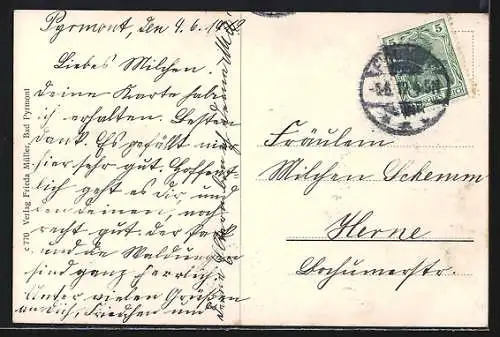 Pyrmont, den 4.6.
Liebes Milchen.
Deine Karte habe
ich erhalten. Besten
Dank. Es gefällt mir
hier sehr gut. Hoffent-
lich geht es dir und
den deinen, noch
recht gut. Der Park
und die Waldungen
sind ganz herrlich.
Unter vielen Grüßen
an dich, Friedchen und
c 770 Verlag Frieda Müller, Bad Pyrmont
5
Fräulein
Milchen Schemm
Herne
Bochumerstr.